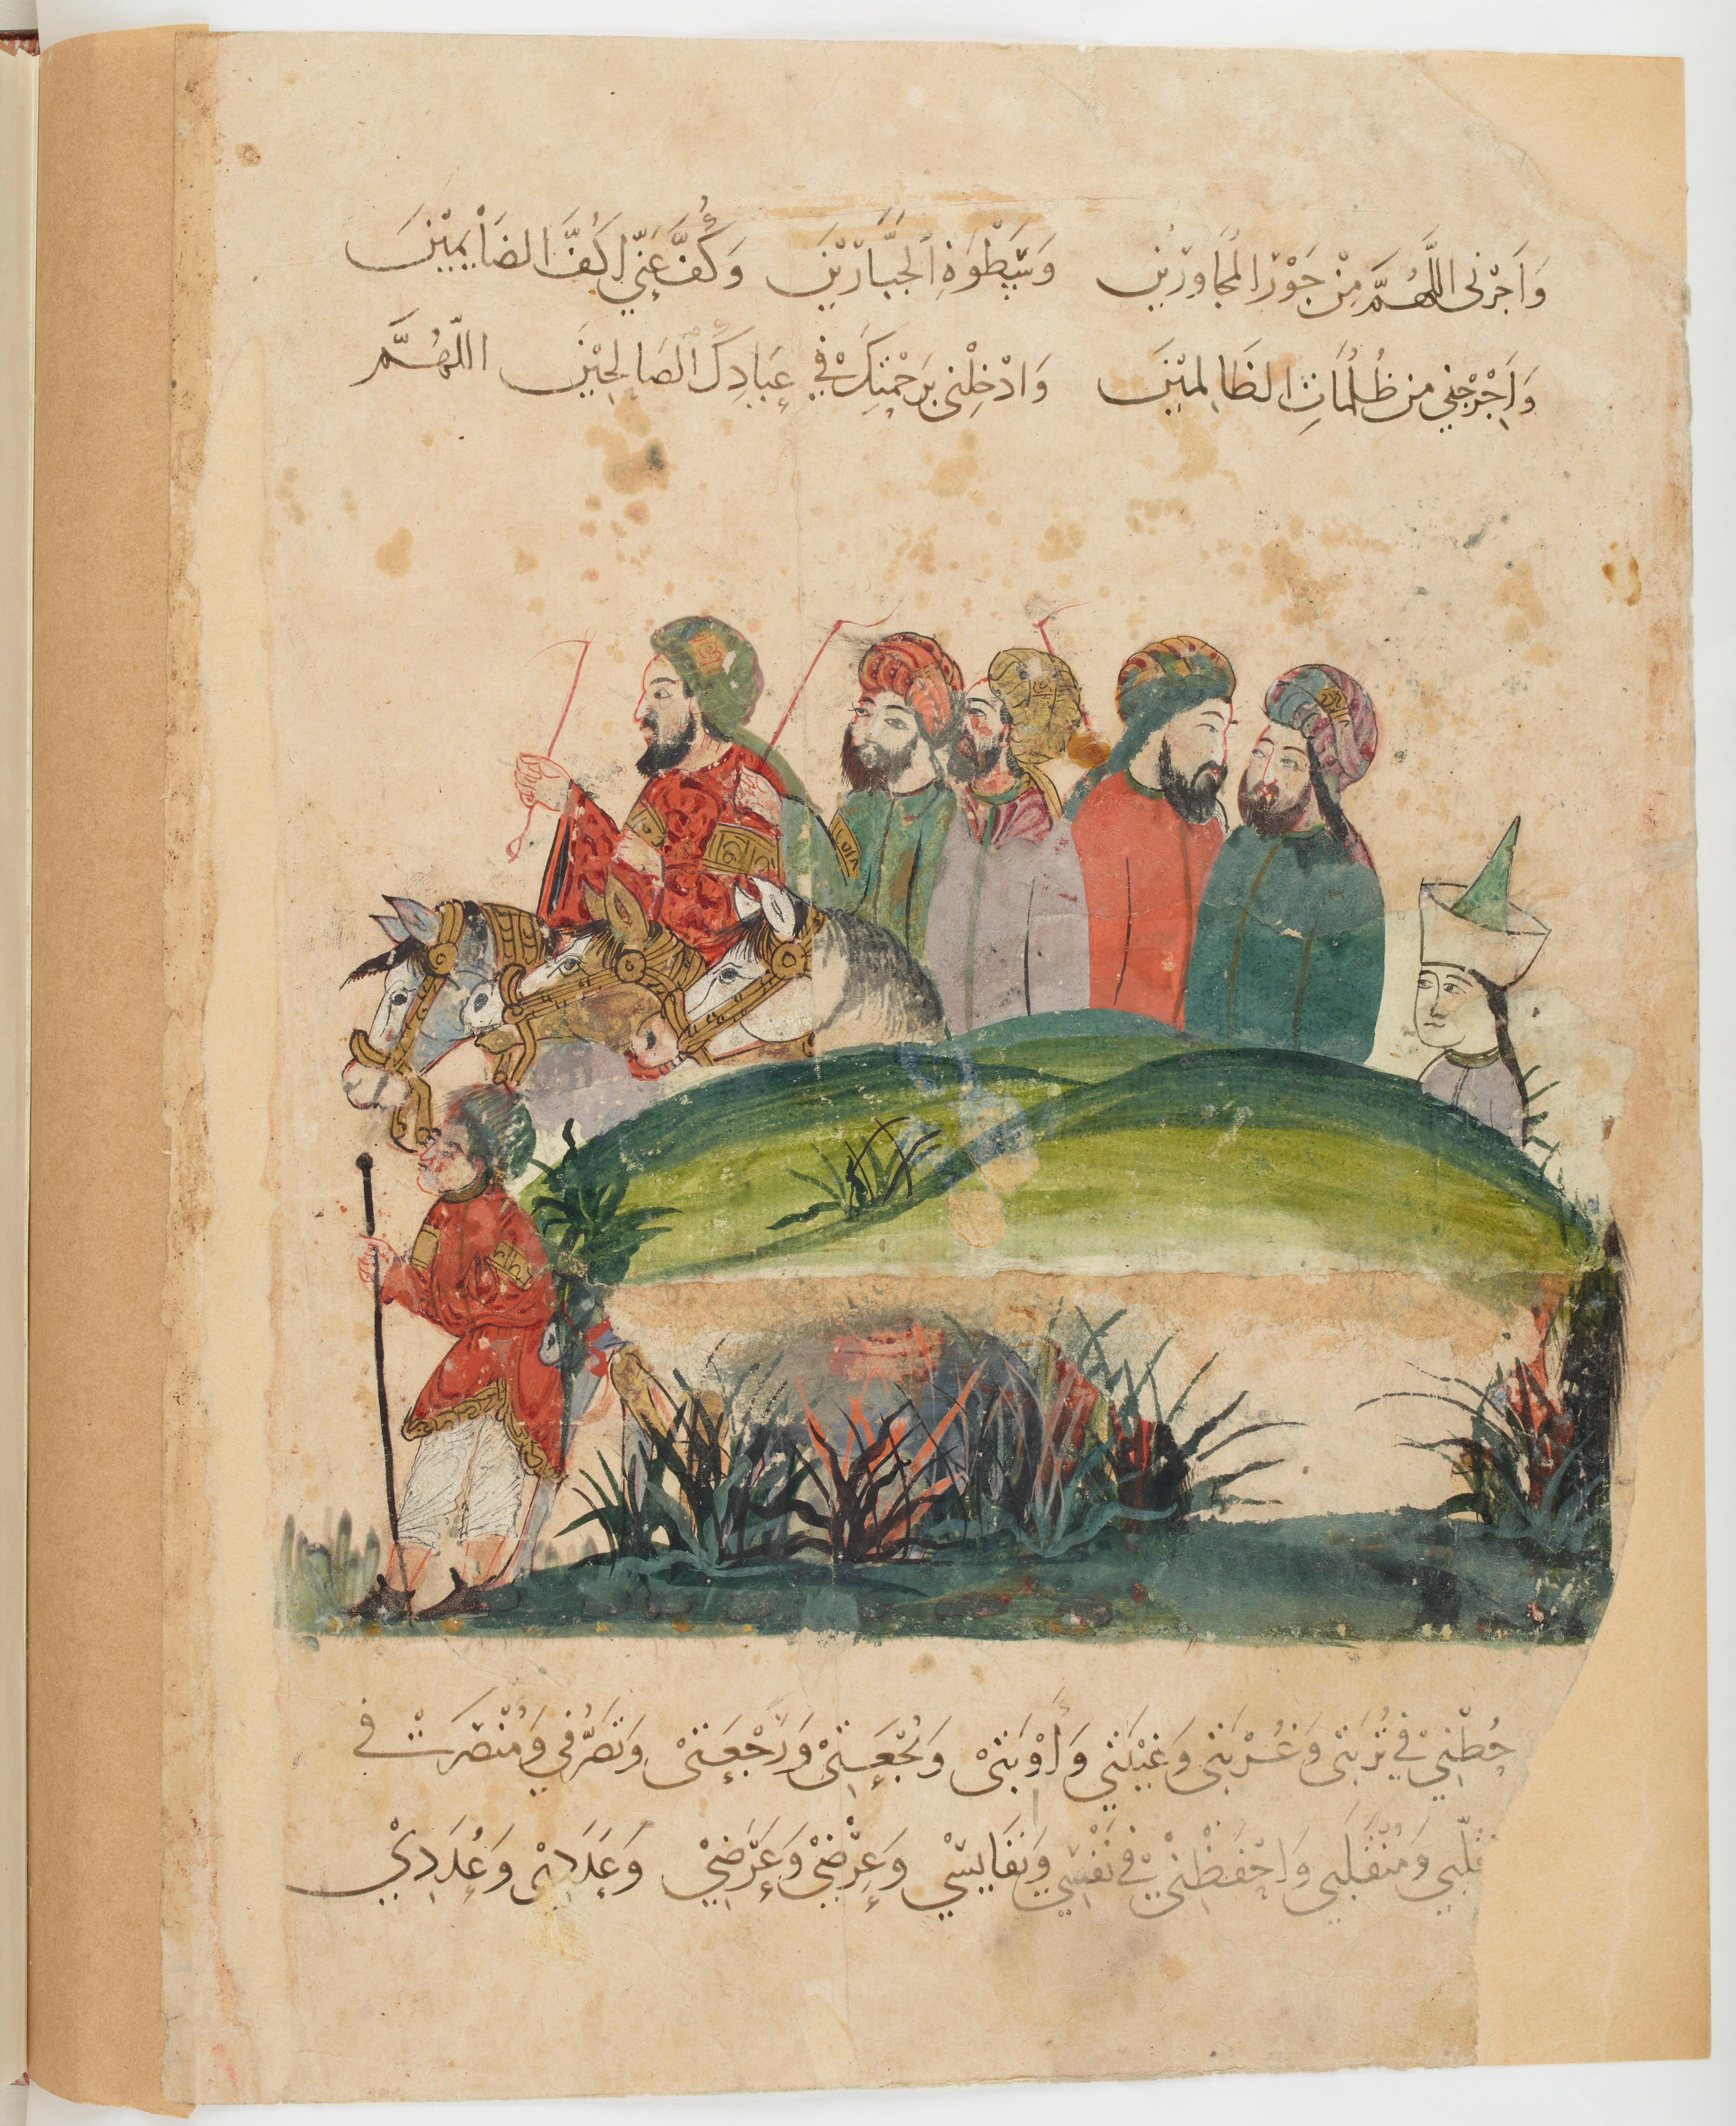 وَاَجِرْنِى اللَّهُمَّ مِنْ جَوْرِ المُجَاوِرِيْنِ وَسَطْوَةِ الجَبَّارِيْنَ وَكُفَّ عَنِّي اَكُفَّ الضَائِمِيْنَ
وَاَخْرِجْنِي مِن ظُلُمَاتِ الظَالِمِيْنَ وَادْخِلْنِى بِرَحْمَتِكَ فِي عِبَادِكَ الصَالِحِيْنَ اللّهُمَّ
حُطْنِيْ فِي تُرْبَتِى وَغُرْبَتِى وَغَيْبَتِي وَأَوْبَتِىْ وَنُجْعَتِىْ وَرَجْعَتِىْ وَتَصَرُّفِي وَمُنْصَرَفِي
وَمُنْقَلَبِي وَاحْفَظْنِىْ فِي نَفْسِي وَنَفَايِسِيْ وَعِرْضِيْ وَعَرَضِيْ وَعَدَدِىْ وَعُدَدِيْ